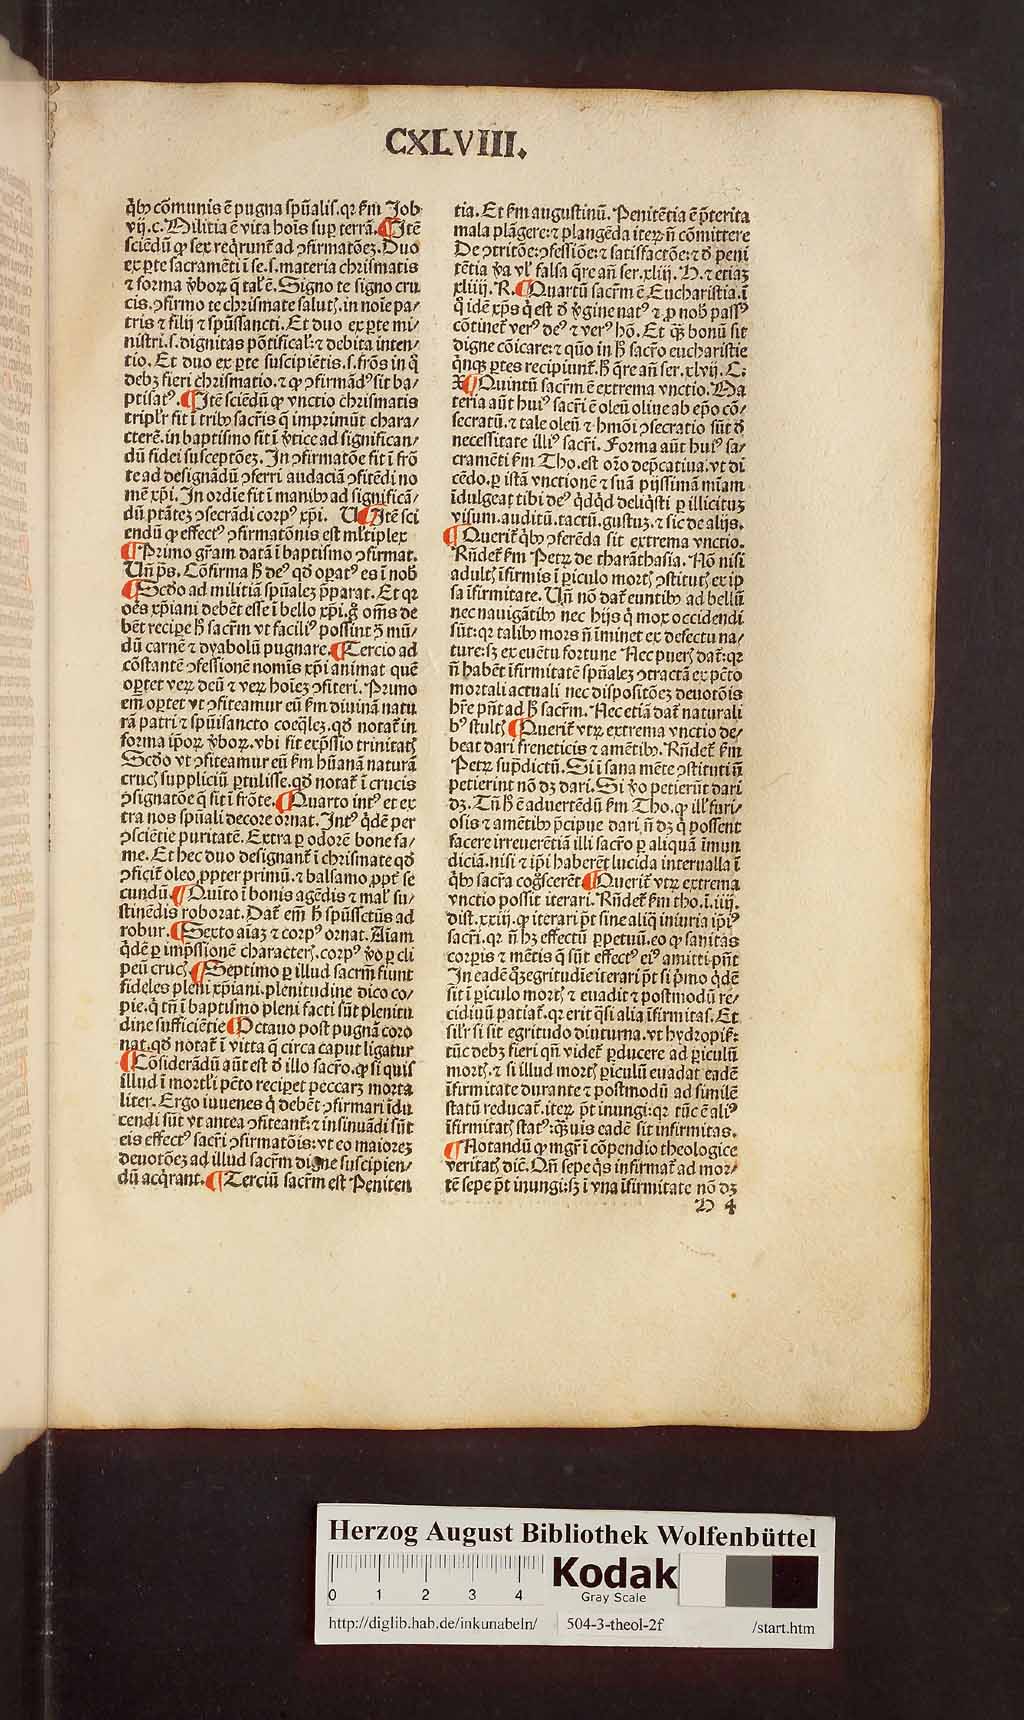 CXLVIII.
q̄bꝫ cōmunis ē pugna sp̄ualis. qꝛ ẜm Job
vij. c. Militia ē vita hoīs suꝑ terrā. ¶ Itē
sciēdū ꝙ sex reqͥrunt᷑ ad ꝯfirmatōeꝫ. Duo
ex ꝑte sacramēti ī se. s. materia chrismatis
⁊ forma v̓boꝝ q̄ tal̓ ē. Signo te signo cru
cis. ꝯfirmo te chrismate salutꝭ. in noīe pa⸗
tris ⁊ filij ⁊ sp̄ussancti. Et duo ex ꝑte mi⸗
nistri. s. dignitas pōtifical̓: ⁊ debita inten⸗
tio. Et duo ex ꝑte suscipiētis. s. frōs in qͣ
debꝫ fieri chrismatio. ⁊ ꝙ ꝯfirmādꝰ sit ba⸗
ptisatꝰ. ¶ Itē sciēdū ꝙ vnctio chrismatis
tripl̓r fit ī tribꝰ sacr̄is q̄ imprimūt chara⸗
cterē. in baptismo fit ī v̓tice ad significan⸗
dū fidei susceptōeꝫ. In ꝯfirmatōe fit ī frō
te ad designādū ꝯferri audaciā ꝯfitēdi no
mē xp̄i. In ordīe fit ī manibꝰ ad significā⸗
dū ptāteꝫ ꝯsecrādi corpꝰ xp̄i. V ¶ Itē sci
endū ꝙ effectꝰ ꝯfirmatōnis est ml̓tiplex
¶ Primo gr̄am datā ī baptismo ꝯfirmat.
Un̄ ps̄. Cōfirma h̄ deꝰ qd̓ oꝑatꝰ es ī nob̓
¶ Scd̓o ad militiā sp̄ualeꝫ p̄parat. Et qꝛ
oēs xp̄iani debēt esse ī bello xp̄i. g̊ om̄s de
bēt reciꝑe h̄ sacr̄m vt faciliꝰ possint ꝯ̓ mū⸗
dū carnē ⁊ dyabolū pugnare. ¶ Tercio ad
cōstantē ꝯfessionē nomīs xp̄i animat quē
oꝑtet veꝝ deū ⁊ veꝝ hoīeꝫ ꝯfiteri. Primo
em̄ oꝑtet vt ꝯfiteamur eū ẜm diuinā natu
rā patri ⁊ sp̄uisancto coeq̄leꝫ. qd̓ notat᷑ in
forma ip̄oꝝ v̓boꝝ. vbi fit exp̄ssio trinitatꝭ
Scd̓o vt ꝯfiteamur eū ẜm hūanā naturā
crucꝭ suppliciū ꝑtulisse. qd̓ notat᷑ ī crucis
ꝯsignatōe q̄ fit ī frōte. ¶ Quarto intꝰ et ex
tra nos sp̄uali decore ornat. Intꝰ qͥdē per
ꝯsciētie puritatē. Extra ꝑ odorē bone fa⸗
me. Et hec duo designant᷑ ī chrismate qd̓
ꝯficit᷑ oleo ꝓpter primū. ⁊ balsamo ꝓpt̓ se
cundū. ¶ Quīto ī bonis agēdis ⁊ mal̓ su⸗
stinēdis roborat. Dat᷑ em̄ h̄ sp̄ussctūs ad
robur. ¶ Sexto aīaꝫ ⁊ corpꝰ ornat. Aīam
qͥdē ꝑ imp̄ssionē characterꝭ. corpꝰ v̓o ꝑ cli
peū crucꝭ. ¶ Septimo ꝑ illud sacrm̄ fiunt
fideles pleni xp̄iani. plenitudine dico co⸗
pie. qͥ tn̄ ī baptismo pleni facti sūt plenitu
dine sufficiētie ¶ Octauo post pugnā coro
nat. qd̓ notat᷑ ī vitta q̄ circa caput ligatur
¶ Cōsiderādū aūt est d̓ illo sacr̄o. ꝙ si quis
illud ī mortl̓i pctō reciꝑet peccaꝫ morta
liter. Ergo iuuenes qͥ debēt ꝯfirmari īdu
cendi sūt vt antea ꝯfiteant᷑: ⁊ insinuādi sūt
eis effectꝰ sacr̄i ꝯfirmatōis: vt eo maioreꝫ
deuotōeꝫ ad illud sacr̄m digne suscipien⸗
dū acqͥrant. ¶ Terciū sacr̄m est Peniten
tia. Et ẜm augustinū. Penitētia ē p̄terita
mala plāgere: ⁊ plangēda iteꝝ nō cōmittere
De ꝯtritōe: ꝯfessiōe: ⁊ satisfactōe: ⁊ d̓ peni
tētia v̓a vl̓ falsa q̄re an̄ ser. xliij. H. ⁊ etiaꝫ
xliiij. R. ¶ Quartū sacr̄m ē Eucharistia. ī
qͣ idē xp̄s qͥ est d̓ v̓gine natꝰ ⁊ ꝓ nob̓ passꝰ
cōtinet᷑ verꝰ deꝰ ⁊ verꝰ hō. Et qͣꝫ bonū sit
digne cōicare: ⁊ qūo in h̄ sacr̄o eucharistie
qͥnqꝫ ꝑtes recipiunt᷑. h̄ q̄re an̄ ser. xlvij. C:
X ¶ Quintū sacr̄m ē extrema vnctio. Ma
teria aūt huiꝰ sacr̄i ē oleū oliue ab ep̄o cō⸗
secratū. ⁊ tale oleū ⁊ hmōi ꝯsecratio sūt d̓
necessitate illiꝰ sacr̄i. Forma aūt huiꝰ sa⸗
cramēti ẜm Tho. est or̄o dep̄catiua. vt dī
cēdo. ꝑ istā vnctionē ⁊ suā pijssimā mīam
īdulgeat tibi deꝰ qͥdqͥd deliqͥsti ꝑ illicituꝫ
visum. auditū. tactū. gustuꝫ. ⁊ sic de alijs.
¶ Querit᷑ qͥbꝰ ꝯferēda sit extrema vnctio.
Rn̄det᷑ ẜm Petꝝ de tharāthasia. Nō nisi
adultꝭ īfirmis ī ꝑiculo mortꝭ ꝯstitutꝭ ex ip
sa īfirmitate. Un̄ nō dat᷑ euntibꝰ ad bellū
nec nauigātibꝰ nec hijs qͥ mox occidendi
sūt: qꝛ talibꝰ mors nō īminet ex defectu na⸗
ture: sꝫ ex euētu fortune Nec puerꝭ dat᷑: qꝛ
nō habēt īfirmitatē sp̄ualeꝫ ꝯtractā ex pctō
mortali actuali nec dispositōeꝫ deuotōis
hr̄e pn̄t ad h̄ sacr̄m. Nec etiā dat᷑ naturali
bꝰ stultꝭ ¶ Querit᷑ vtꝝ extrema vnctio de⸗
beat dari freneticis ⁊ amētibꝰ. Rn̄det᷑ ẜm
Petꝝ sup̄dictū. Si ī sana mēte ꝯstituti nō
petierint nō dꝫ dari. Si v̓o petierūt dari
dꝫ. Tn̄ h̄ ē aduertēdū ẜm Tho. ꝙ ill̓ furi⸗
osis ⁊ amētibꝰ p̄cipue dari nō dꝫ qͥ possent
facere irreuerētiā illi sacr̄o ꝑ aliquā īmun
diciā. nisi ⁊ ip̄i haberēt lucida interualla ī
qͥbꝰ sacr̄a cogͦscerēt ¶ Querit᷑ vtꝝ extrema
vnctio possit iterari. Rn̄det᷑ ẜm tho. ī. iiij.
dist. xxiij. ꝙ iterari pt̄ sine aliqͣ iniuria ip̄iꝰ
sacr̄i. qꝛ nō hꝫ effectū ꝑpetuū. eo ꝙ sanitas
corꝑis ⁊ mētis q̄ sūt effectꝰ eiꝰ amitti pn̄t
In eadē qͣꝫ egritudīe iterari pt̄ si pͥmo qͥdē
sit ī ꝑiculo mortꝭ ⁊ euadit ⁊ postmodū re⸗
cidiuū patiat᷑. qꝛ erit qͣsi alia īfirmitas. Et
sil̓r si sit egritudo diuturna. vt hydropiſꝭ:
tūc debꝫ fieri qn̄ videt᷑ ꝑducere ad ꝑiculū
mortꝭ. ⁊ si illud mortꝭ ꝑiculū euadat eadē
īfirmitate durante ⁊ postmodū ad similē
statū reducat᷑. iteꝝ pt̄ inungi: qꝛ tūc ē aliꝰ
īfirmitatꝭ statꝰ: qͣꝫuis eadē sit infirmitas.
¶ Notandū ꝙ mgr̄ ī cōpendio theologice
veritatꝭ dic̄. Qn̄ sepe qͥs infirmat᷑ ad mor⸗
tē sepe pt̄ inungi: sꝫ ī vna īfirmitate nō dꝫ
D 4
Herzog August Bibliothek Wolfenbüttel
0 1 2 3 4
Kodak
Gray Scale
http://diglib.hab.de/inkunabeln/ 504-3-theol-2f /start.htm